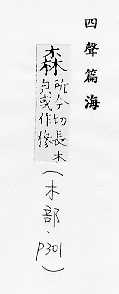 四聲篇海
所今切長木
皃或作槮
(木部、P301)